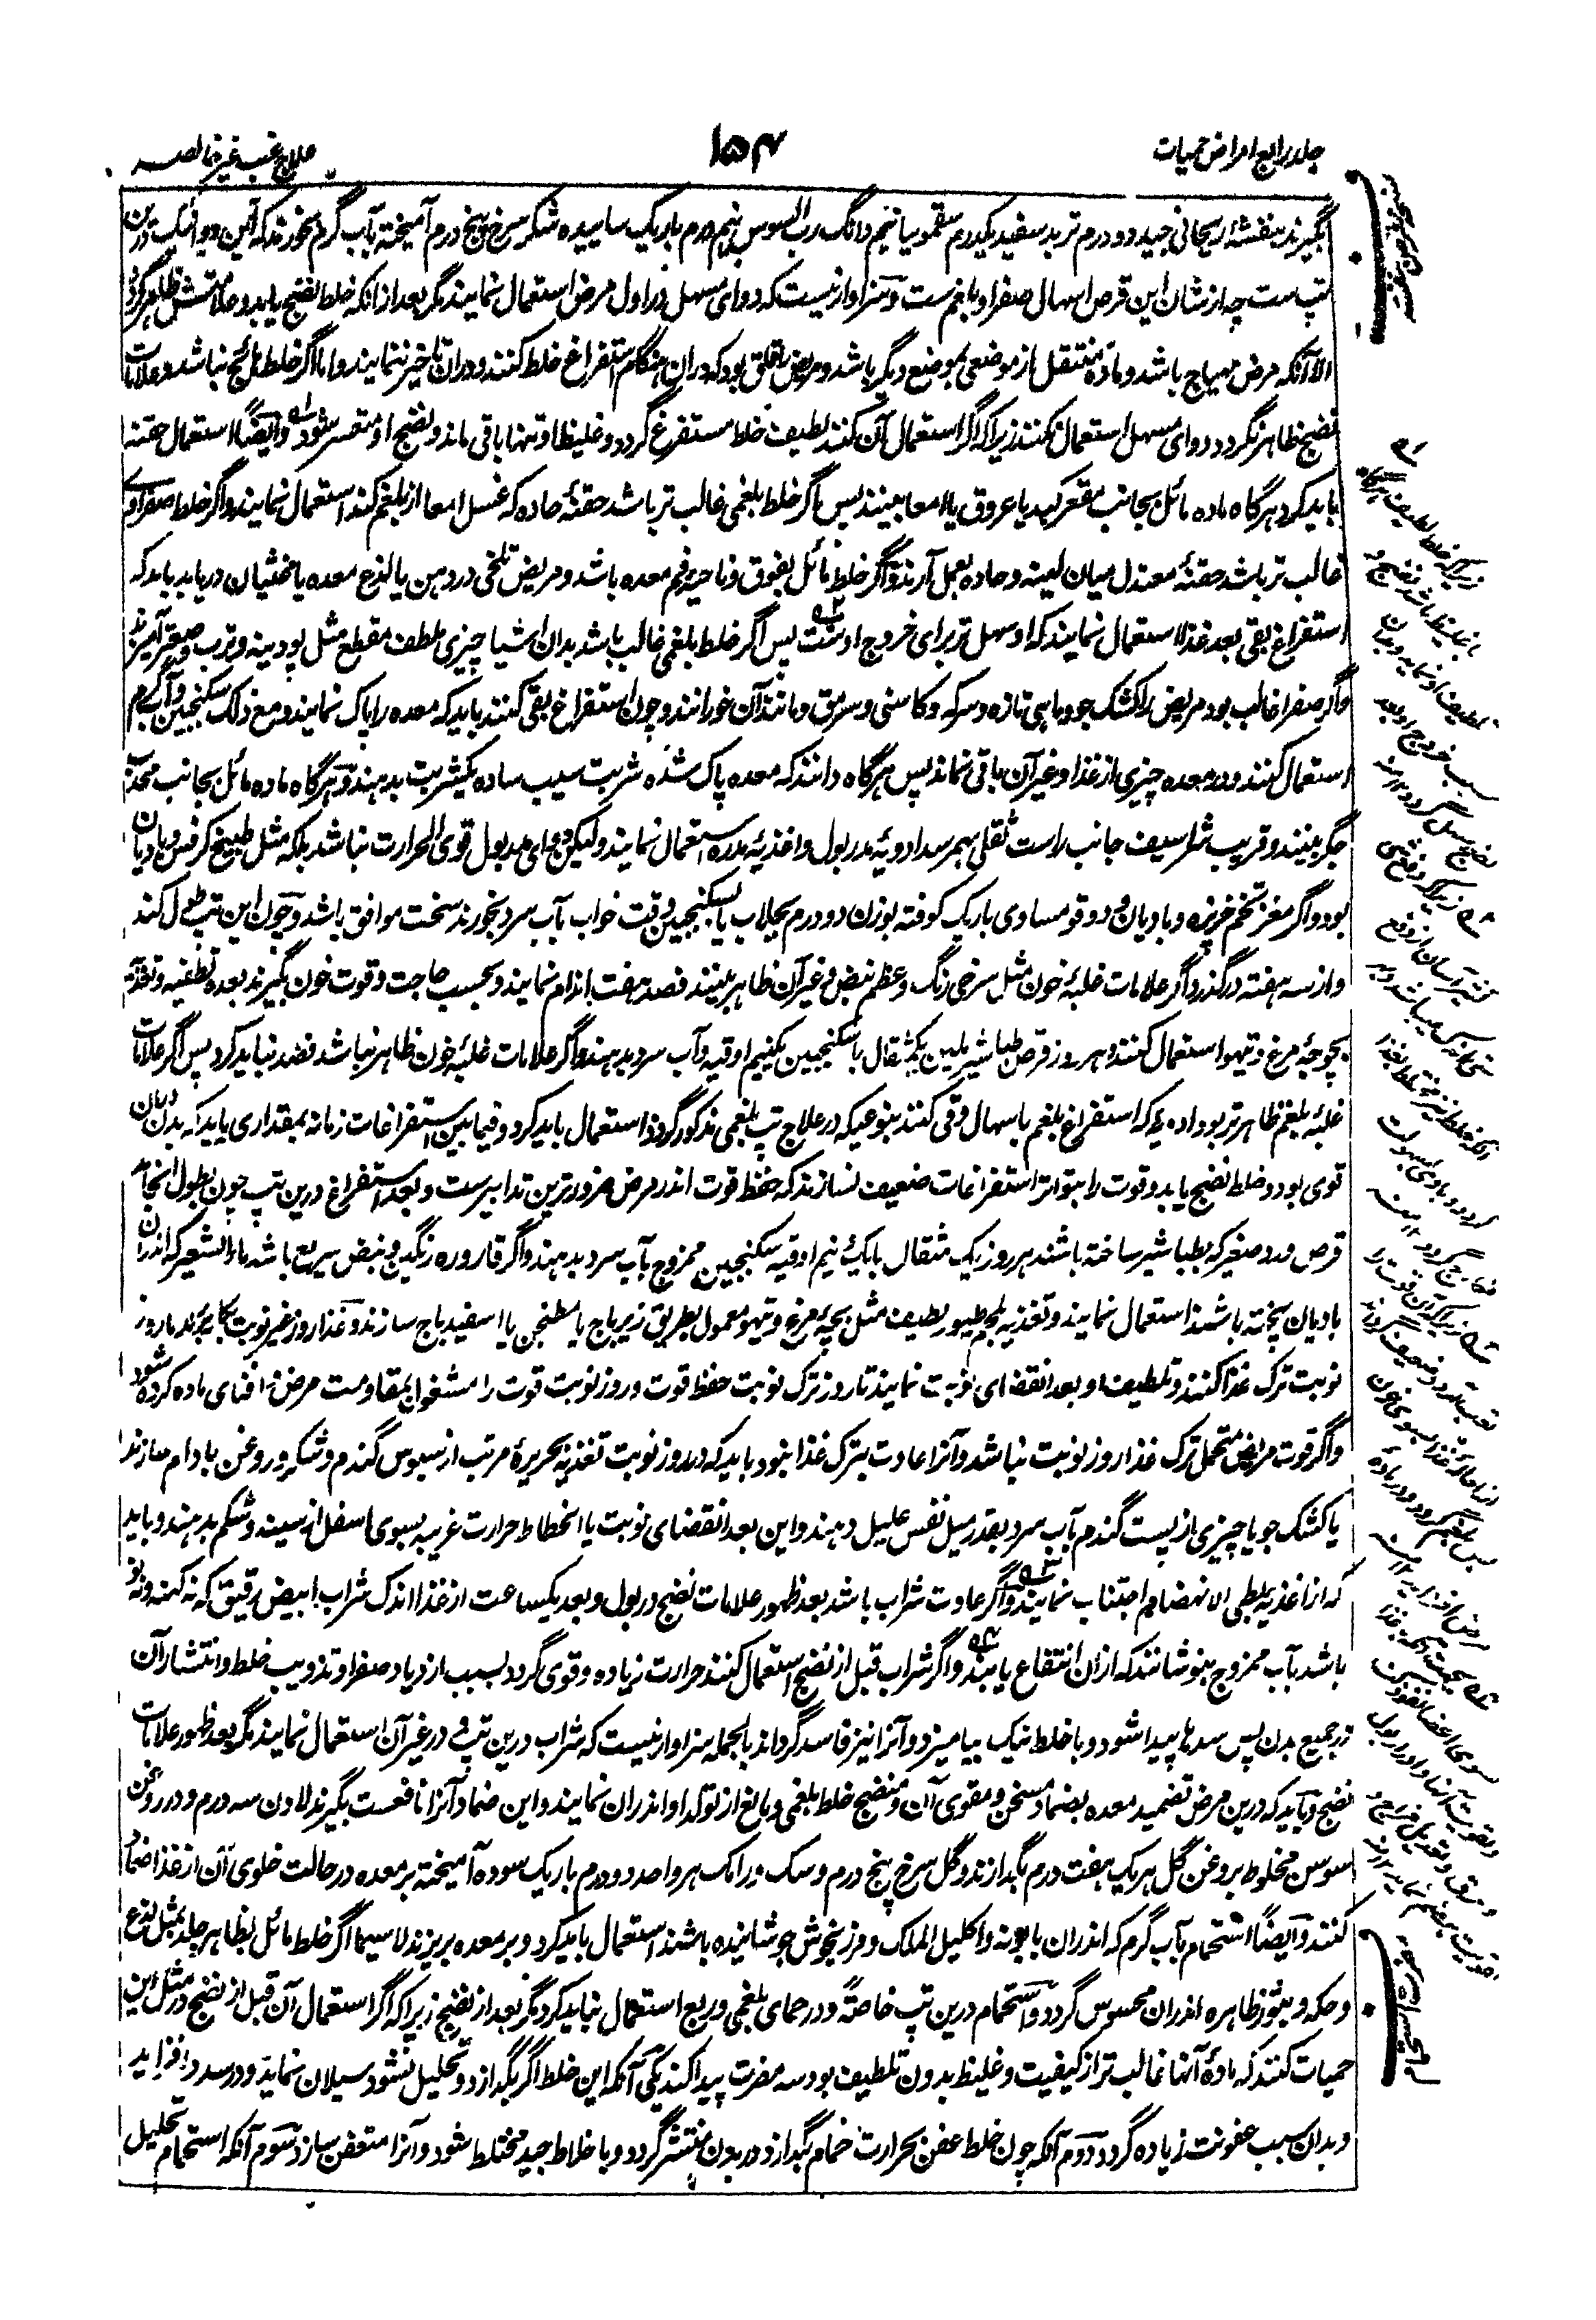 جلد رابع امراض حمیات
۱۵۴
علاج غب غیر خالصه
بگیرند بنفشهٔ ریحانی جید دو درم تربد سفید یکدرم سقمونیا نیم دانگ رب السوس نیم درم باریک ساییده شکر سرخ پنج درم آمیخته بآب گرم بخورند که این دوا نیک درین
تپ ست چه از شان این قرص اسهال صفرا و بلغم ست و سزاوار نیست که دوای مسهل در اول مرض استعمال نمایند مگر بعد از انکه خلط نضج یابد و علامتش ظاهر گردد
الا آنکه مرض مهیاج باشد و ماده منتقل از موضعی بموضع دیگر باشد و مریض را قلق بود که دران هنگام استفراغ خلط کنند و دران تاخیر ننمایند و اما اگر خلط هائج نباشد و علامات
نضج ظاهر نگردد دوای مسهل استعمال نکنند زیراکه اگر استعمال آن کنند لطیف خلط مستفرغ گردد و غلیظ او تنها باقی ماند و نضج او متعسر شود و ایضاً استعمال حقنه
باید کرد هرگاه ماده مائل بجانب مقعر کبد یا عروق یا امعا بینند پس اگر خلط بلغمی غالب تر باشد حقنهٔ حاده که غسل امعا از بلغم کند استعمال نمایند و اگر خلط صفراوی
غالب تر باشد حقنهٔ معتدل میان لینه و حاده بعمل آرند و اگر خلط مائل بفوق و ناحیه فم معده باشد و مریض تلخی در دهن یا لذع معده یا غثیان دریابد باید که
استفراغ بقی بعد غذا استعمال نمایند که او سهل تر برای خروج اوست پس اگر خلط بلغمی غالب باشد بدان اشیا چیزی ملطف مقطع مثل پودینه و ترب و صعتر آمیزند
و اگر صفرا غالب بود مریض را کشک جو و ماهی تازه و سرکه و کاسنی و سرمق و مانند آن خورانند و چون استفراغ بقی کنند باید که معده را پاک نمایند و مع ذلک سکنجبین و آب گرم
استعمال کنند و در معده چیزی از غذا و غیر آن باقی نماند پس هرگاه دانند که معده پاک شده شربت سیب ساده یکشربت بدهند و هرگاه ماده مائل بجانب محدب
جگر بینند و قریب شراسیف جانب راست ثقلی بهم رسد ادویهٔ مدر بول و اغذیهٔ مدره استعمال نمایند و لیکن دوای مدر بول قوی الحرارت نباشد بلکه مثل طبیخ کرفس و بادیان
بود و اگر مغز تخم خرپزه و بادیان و دوقو مساوی باریک کوفته بوزن دو درم بجلاب یا سکنجبین وقت خواب بآب سرد بخورند سخت موافق باشد و چون این تپ طول کند
و از سه هفته درگذرد اگر علامات غلبهٔ خون مثل سرخی رنگ و عظم نبض و غیر آن ظاهر بینند فصد هفت اندام نمایند و بحسب حاجت و قوت خون بگیرند بعده تطفیه و تغذیه
بچوجهٔ مرغ و تیهو استعمال کنند و هر روز قرص طباشیر ملین یکمثقال با سکنجبین یکنیم اوقیه و آب سرد بدهند و اگر علامات غلبهٔ خون ظاهر نباشد فصد نباید کرد پس اگر علامات
غلبهٔ بلغم ظاهر تر بود ادویه که استفراغ بلغم باسهال و قی کنند بنوعیکه در علاج تپ بلغمی مذکور گردد استعمال باید کرد و فیمابین استفراغات زمانه بمقداری باید که بدن دران
قوی بود و خلط نضج یابد و قوت را بتواتر استفراغات ضعیف نسازند که حفظ قوت اندر مرض ضرورترین تدابیرست و بعد استفراغ درین تپ چون بطول انجامد
قرص ورد صغیر که بطباشیر ساخته باشند هر روز یک مثقال با یک نیم اوقیه سکنجبین ممزوج بآب سرد بدهند و اگر قاروره رنگین و نبض سریع باشد ماء الشعیر که اندران
بادیان پخته باشند استعمال نمایند و تغذیه بلحم طیور لطیف مثل بچهٔ مرغ و تیهو معمول بطریق زیرباج یا مطنجن یا اسفیدباج سازند و غذا روز غیر نوبت بکار برند و روز
نوبت ترک غذا کنند و تلطیف او بعد انقضای نوبت نمایند تا روز ترک نوبت حفظ قوت و روز نوبت قوت را مشغول بمقاومت مرض و افنای ماده کرده شود
و اگر قوت مریض متحمل ترک غذا روز نوبت نباشد و آنرا عادت بترک غذا نبود باید که در روز نوبت تغذیه بحریرهٔ مرتب از سبوس گندم و شکر و روغن بادام سازند
یا کشک جو یا چیزی از پست گندم بآب سرد بقدر میل نفس علیل دهند و این بعد انقضای نوبت یا انحطاط حرارت غریبه بسوی اسفل از سینه و شکم بدهند و باید
که از اغذیه بطی الانهضام اجتناب نمایند و اگر عادت شراب باشد بعد ظهور علامات نضج در بول و بعد یکساعت از غذا اندک شراب ابیض رقیق که نه کهنه و نه نو
باشد بآب ممزوج بنوشانند که ازان انتفاع یابند و اگر شراب قبل از نضج استعمال کنند حرارت زیاده و قوی گردد بسبب ازدیاد صفرا و تذویب خلط و انتشار آن
در جمیع بدن پس سدها پیدا شود و با خلط نیک بیامیزد و آنرا نیز فاسد گرداند بالجمله سزاوار نیست که شراب درین تپ و در غیر آن استعمال نمایند مگر بعد ظهور علامات
نضج و باید که درین مرض تضمید معده بضماد مسخن و مقوی آن و منضج خلط بلغمی و مانع از تولد او اندران نمایند و این ضماد آنرا نافعست بگیرند لادن سه درم و در روغن
سوسن مخلوط بروغن گل هر یک هفت درم بگدازند و گل سرخ پنج درم و سک و رامک هر واحد دو درم باریک سوده آمیخته بر معده در حالت خلوی آن از غذا ضماد
کنند و ایضاً استحمام بآب گرم که اندران بابونه و اکلیل الملک و مرزنجوش جوشانیده باشند استعمال باید کرد و بر معده بریزند لاسیما اگر خلط مائل بظاهر جلد بمثل لذع
و حکه و بثور ظاهره اندران محسوس گردد و استحمام درین تپ خاصةً و در حمای بلغمی و ربع استعمال نباید کرد مگر بعد از نضج زیراکه اگر استعمال آن قبل از نضج در مثل این
حمیات کنند که مادهٔ آنها غالب تر از کیفیت و غلیظ بدون تلطیف بود سه مضرت پیدا کند یکی آنکه این خلط اگر بگدازد و تحلیل نشود سیلان نماید و در سدد افزاید
و بدان سبب عفونت زیاده گردد دوم آنکه چون خلط عفن بحرارت حمام بگدازد در بدن منتشر گردد و با خلاط جید مختلط شود و آنرا متعفن سازد سوم آنکه استحمام تحلیل